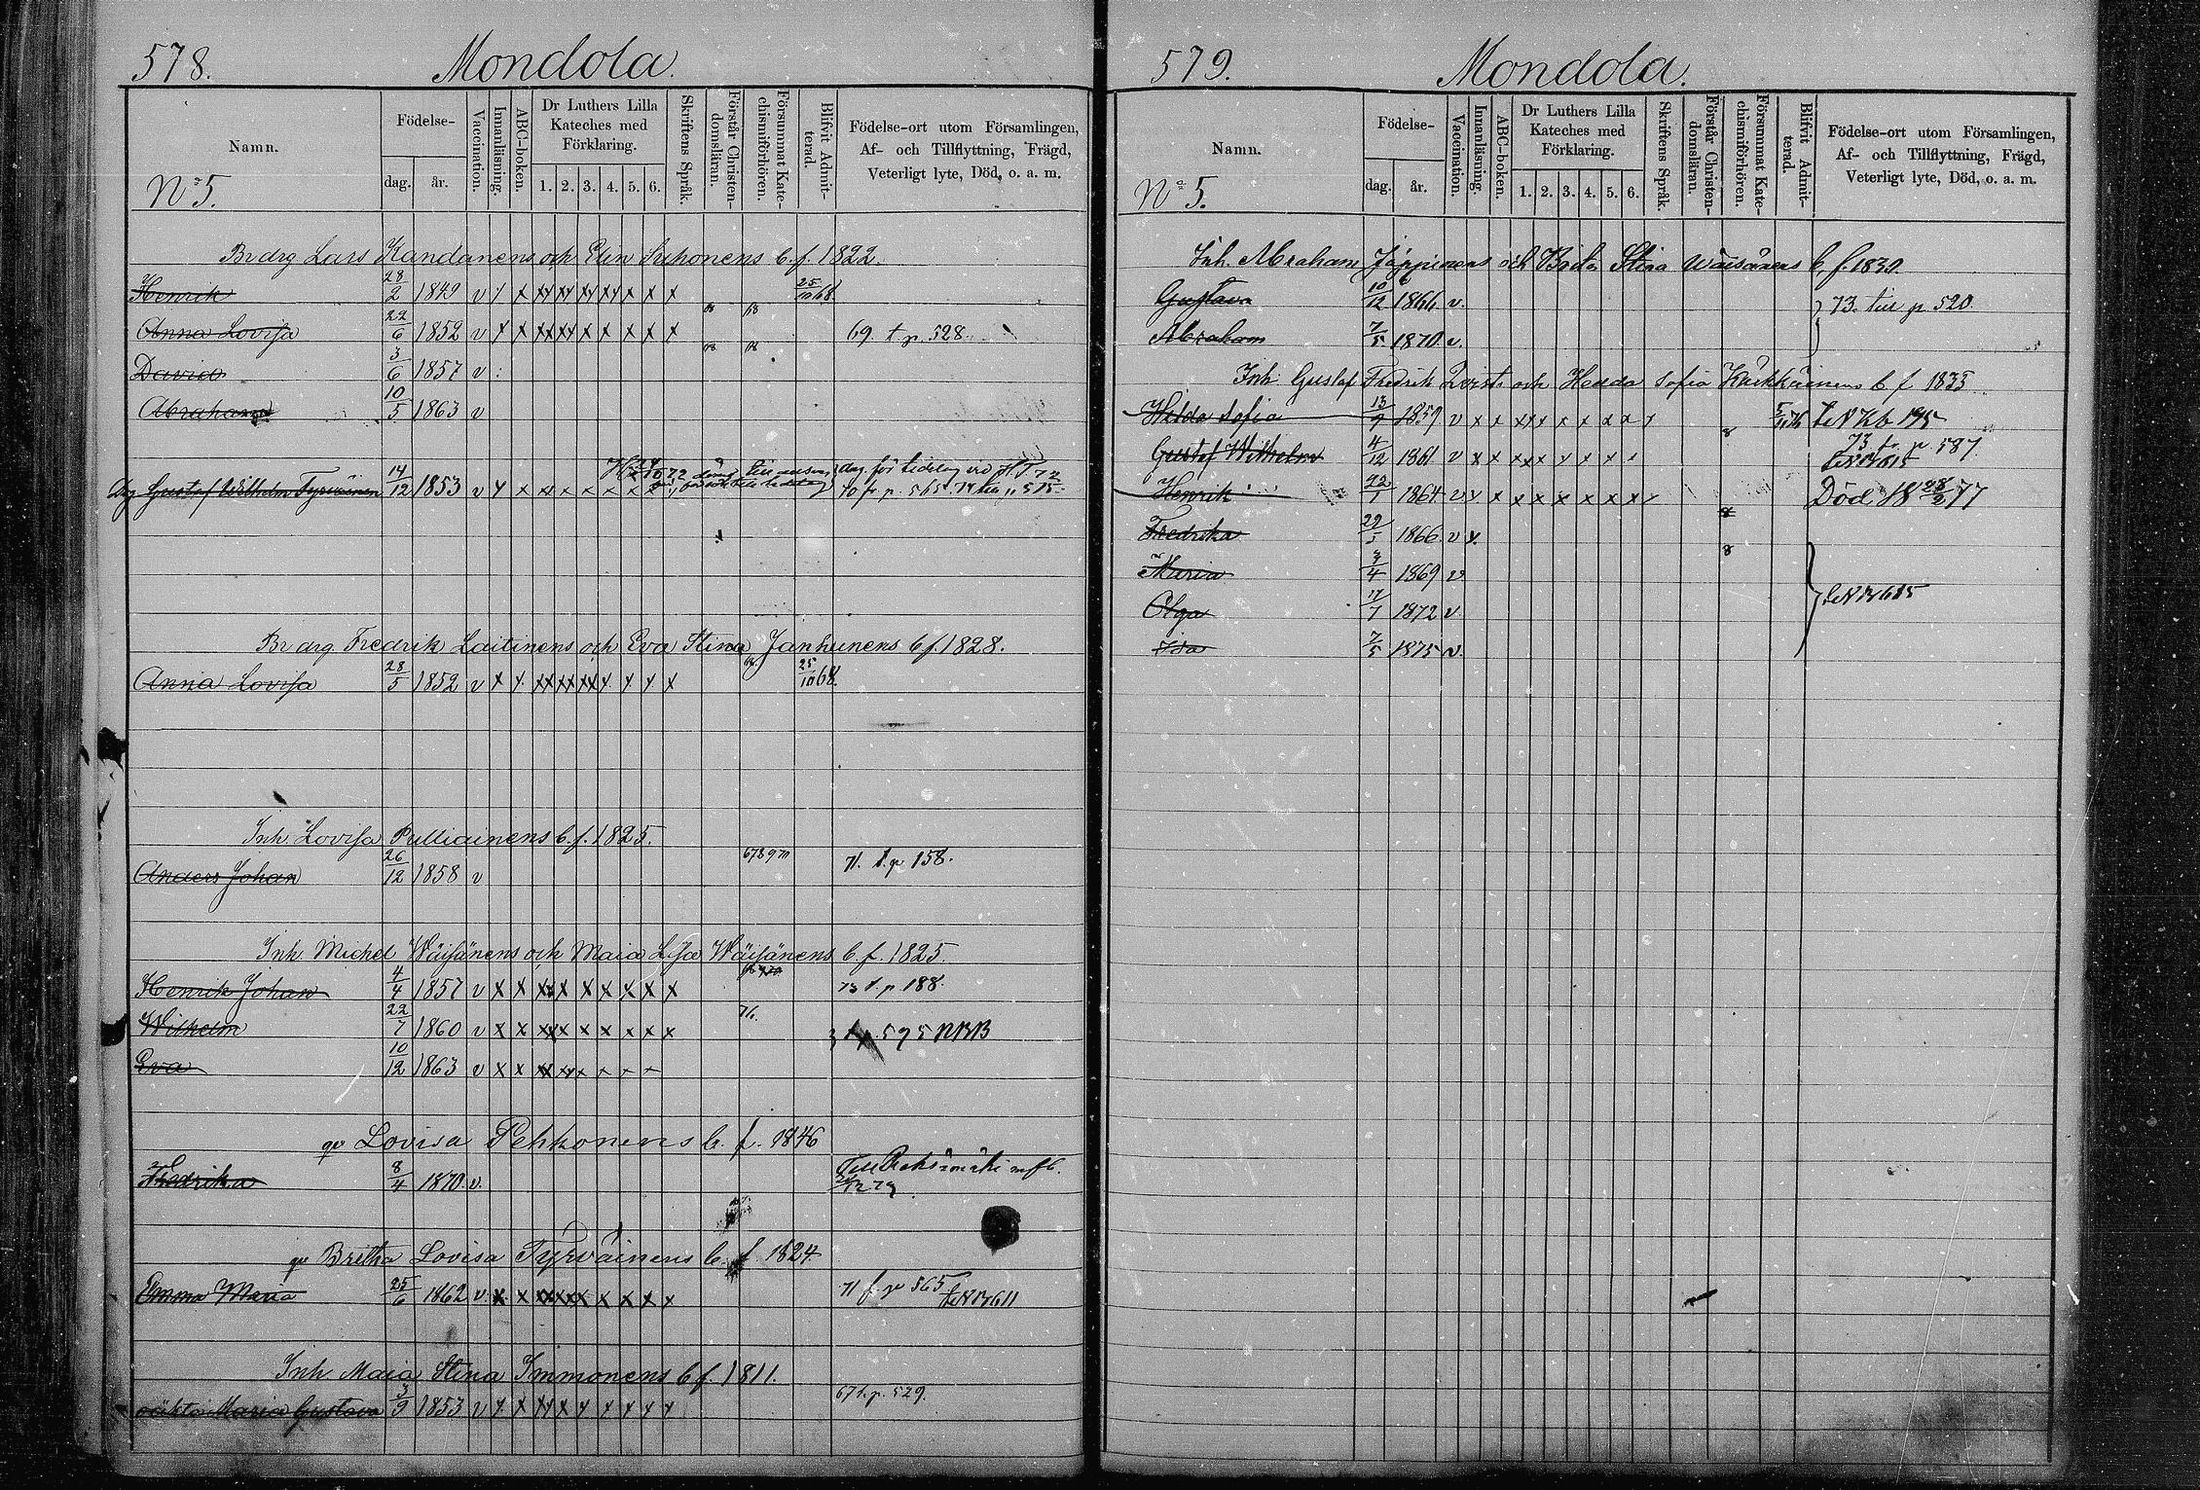 578.
Mondola.
Namn.
Födelse-
dag.
år.
Vaccination.
Innanläsning.
ABC-boken.
Dr Luthers Lilla
Kateches med
Förklaring.
1. 2. 3. 4. 5. 6.
Skriftens Språk.
Förstår Christen-
domsläran.
Försummat Kate-
chismiförhören.
Blifvit Admit-
terad.
Födelse-ort utom Församlingen,
Af- och Tillflyttning, Frägd,
Veterligt lyte, Död, o. a. m.
No 5.
Br drg Lars Kandanens och Elin Suhonens b. f. 1822.
Henrik 28/2 1849 v 25/10 68
Anna Lovisa 22/6 1852 v 69. t p. 528.
David 3/6 1857 v
Abraham 10/5 1863 v
Drg Gustaf Wilhelm Tyrväinen 14/12 1853 v
Br drg Fredrik Laitinens och Eva Stina Janhunens b f. 1828.
Anna Lovisa 28/5 1852 v 25/10 68.
Inh. Lovisa Pulliainens b. f. 1825.
Anders Johan 26/12 1858 v 71. t. p. 158.
Inh. Michel Wäisänens och Maia Lisa Wäisänens b. f. 1825.
Henrik Johan 4/4 1857 v 73 t. p 188.
Wilhelm 22/7 1860 v 76.
595 NBB
Eva 10/12 1863 v
qv Lovisa Pehkonens b. f. 1846
Fredrika 8/4 1870. v.
qv Britha Lovisa Tyrväinens b. f. 1824.
Emma Maria 25/6 1862 v. 71 f. p 565
Inh Maia Stina Immonens b f. 1811.
Maria Gustava 3/9 1853 v 67 t. p. 529.
579.
Mondola.
Namn.
Födelse-
dag.
år.
Vaccination.
Innanläsning.
ABC-boken.
Dr Luthers Lilla
Kateches med
Förklaring.
1. 2. 3. 4. 5. 6.
Skriftens Språk.
Förstår Christen-
domsläran.
Försummat Kate-
chismiförhören.
Blifvit Admit-
terad.
Födelse-ort utom Församlingen,
Af- och Tillflyttning, Frägd,
Veterligt lyte, Död, o. a. m.
No 5.
Inh. Abraham Jäppinens och Brita Stina Wäisänens b. f. 1830.
Gustava 10/12 1866 v. 73. till p. 520
Abraham 7/5 1870 v.
Inh Gustaf Fredrik Qvist och Hedda Sofia Kärkkäinens b f 1835
Hilda Sofia 13/9 1859 v
Gustaf Wilhelm 4/12 1861 v 73 t. p 587.
Henrik 22/1 1864 v Död 18 28/2 77
Fredrika 29/5 1866 v
Maria 3/4 1869 v
Olga 17/7 1872 v.
Ida 7/5 1875 v.